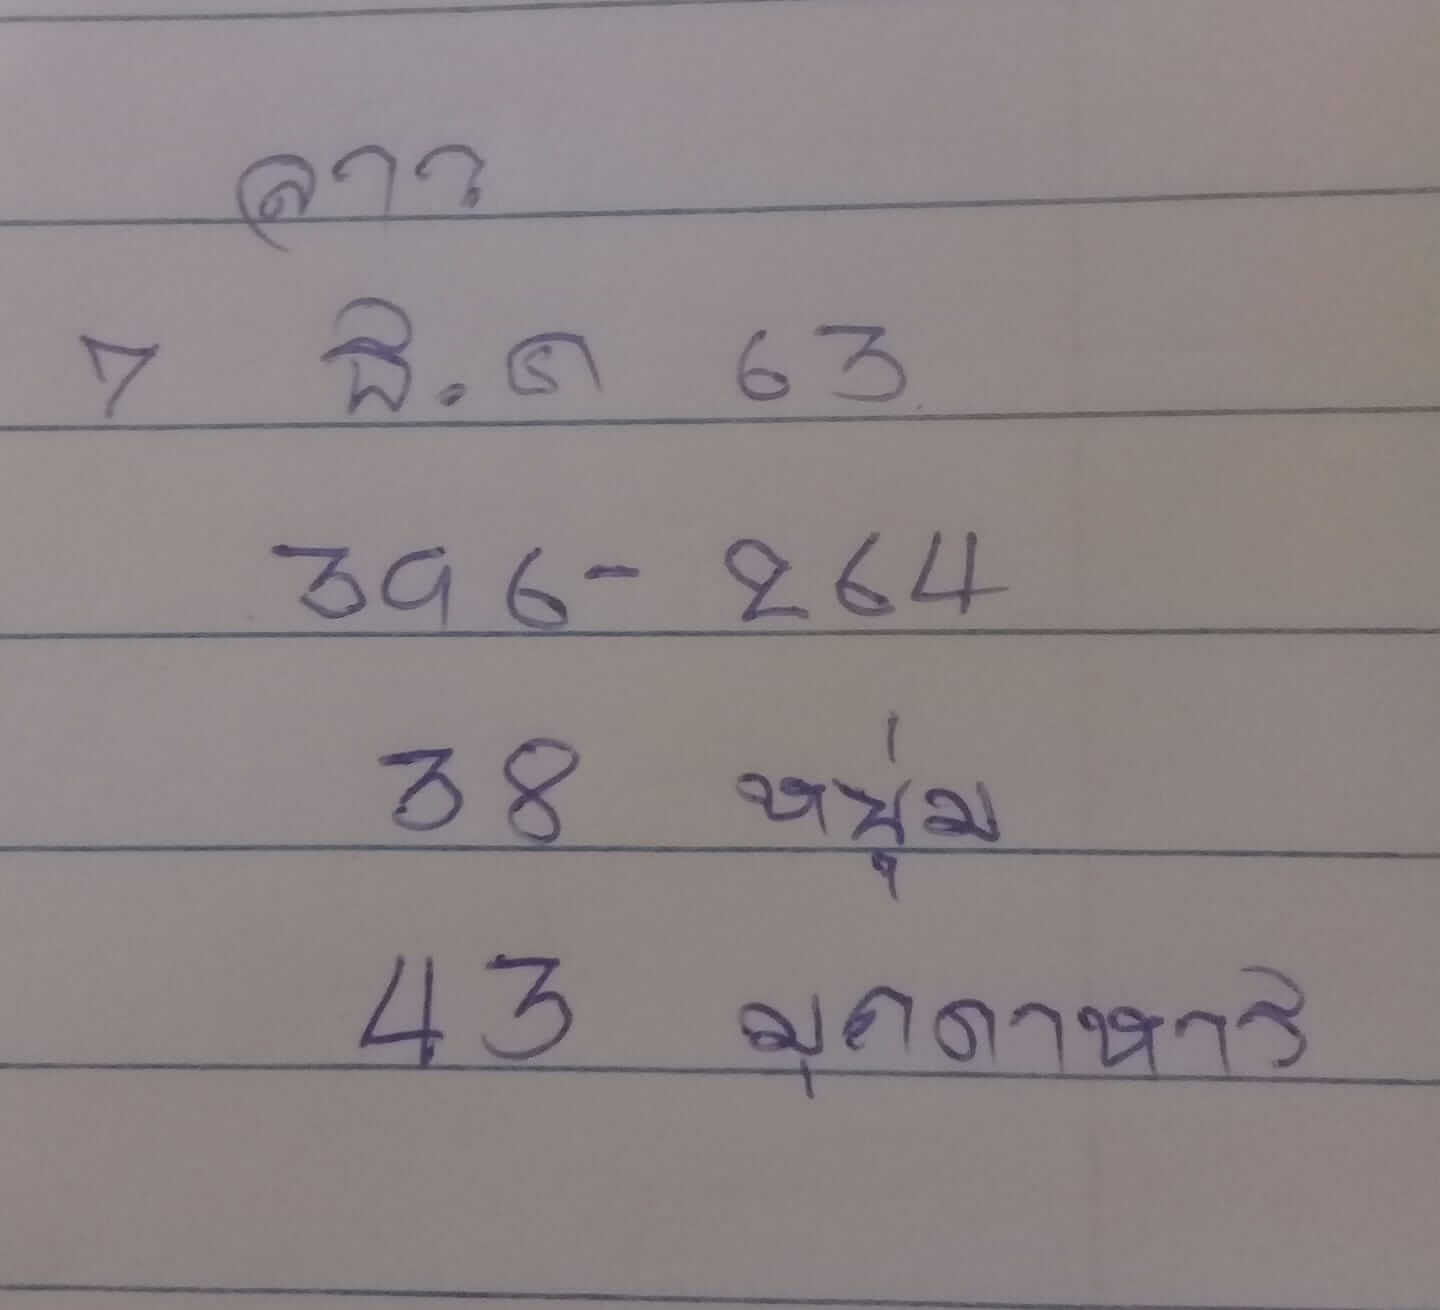 ลาว
7 ธิ.ค 63
396- 264
38 หนุ่ม
43 มุกดาหาร